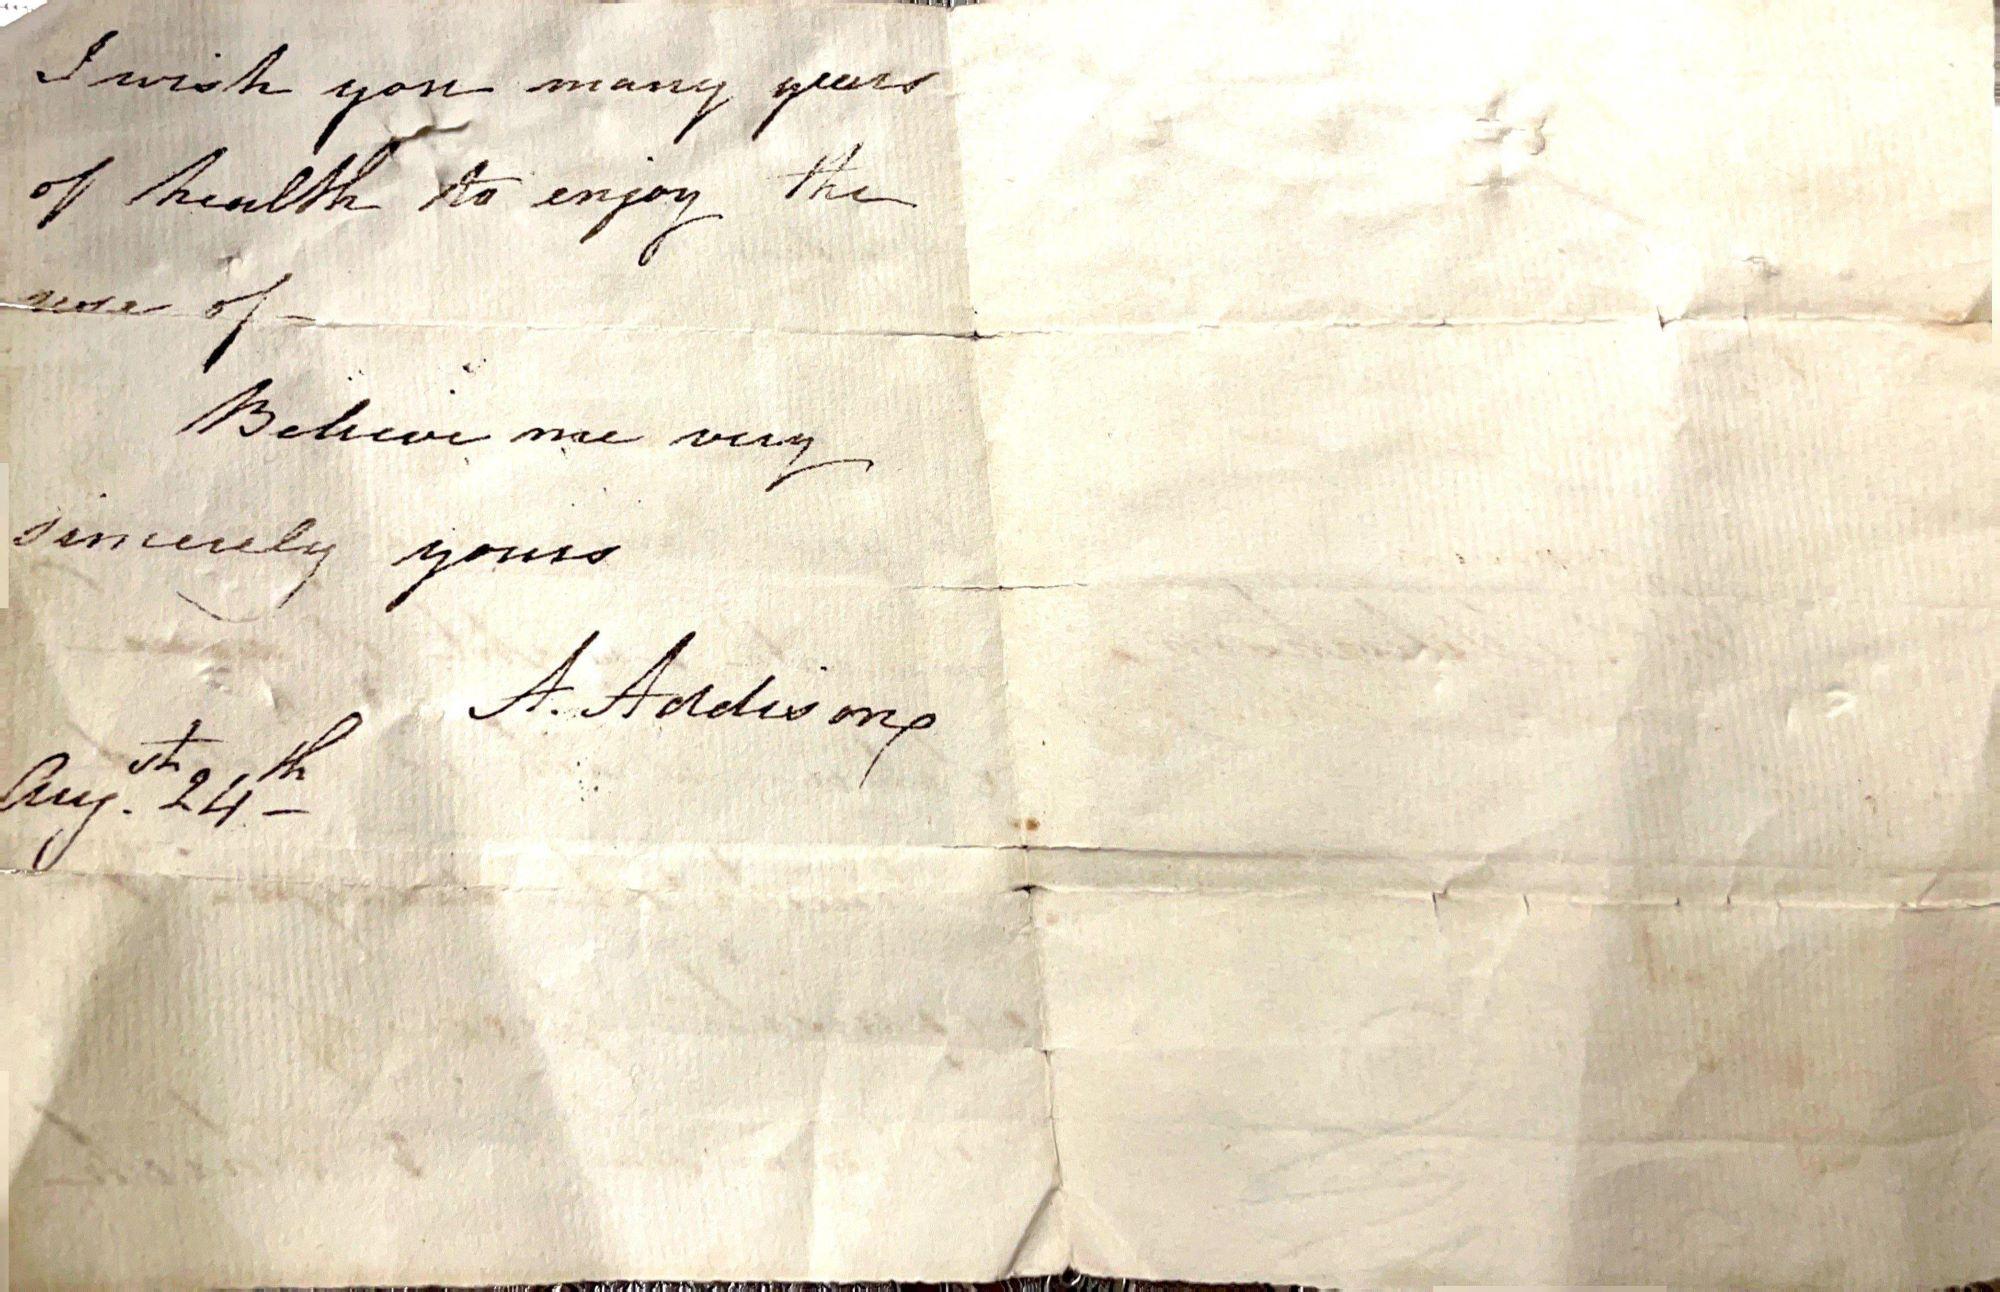 I wish you many years
of health to enjoy the
use of –
Believe me very
sincerely yours
A. Addison
Aug.st 24th